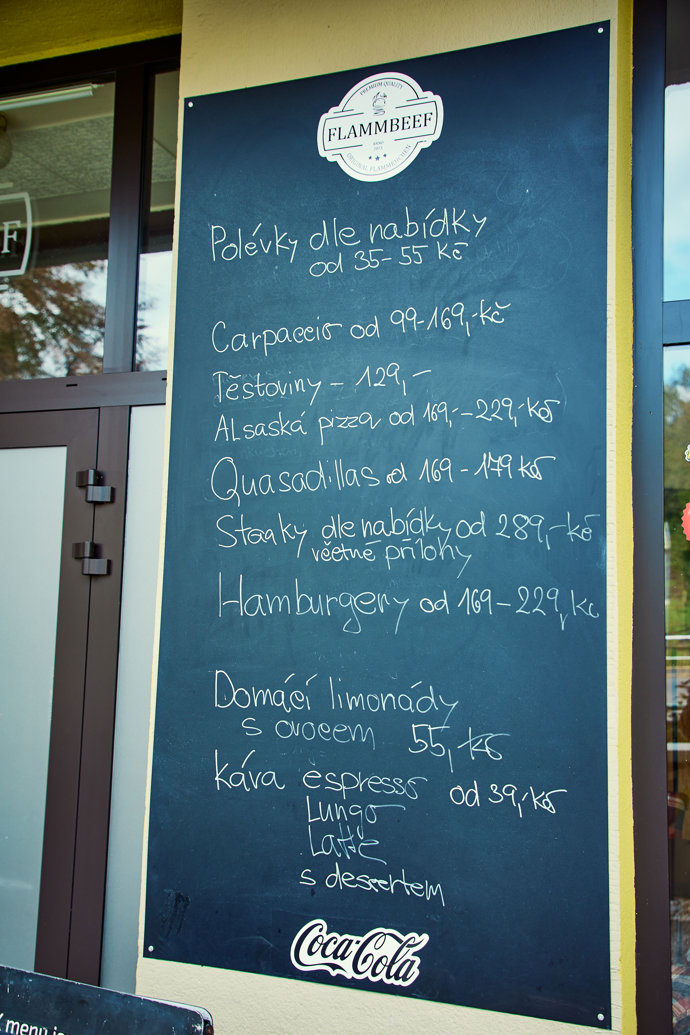 PREMIUM QUALITY
FLAMMBEEF
ANNO
ORIGINAL FLAMMKUCHEN
F
Polévky dle nabídky
od 35-55 Kč
Carpaccio od 99-169,-kč
Těstoviny - 129,-
Alsaská pizza od 169,--229,-kč
Quasadillas od 169-179 kč
Steaky dle nabídky od 289,-kč
včetně přílohy
Hamburgery od 169-229,kč
Domácí limonády
s ovocem 55,-kč
káva espresso od 39,-kč
Lungo
Latté
s desertem
Coca-Cola
menu